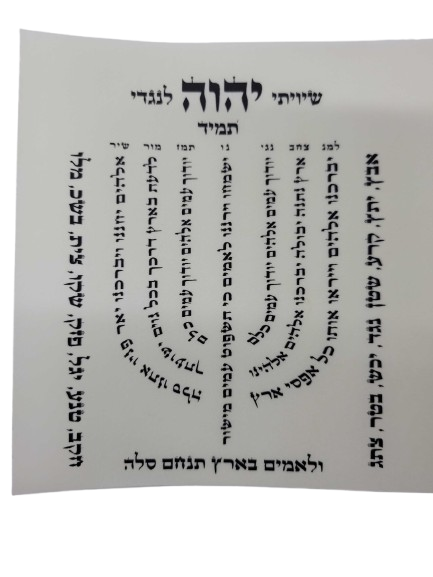 שיויתי יהוה לנגדי
תמיד
למנ צחב נגי נו תמז מור שיר
אבץ, יתץ, קרע, שטן, נגד, יכש, בטר, צתג
יברכנו אלהים וייראו אותו כל אפסי ארץ
ארץ נתנה יבולה יברכנו אלהים אלהינו
יודוך עמים אלהים יודוך עמים כלם
ישמחו וירננו לאמים כי תשפוט עמים מישור
יודוך עמים אלהים יודוך עמים כלם
לדעת בארץ דרכך בכל גוים ישועתך
אלהים יחננו ויברכנו יאר פניו אתנו סלה
חקב, טנע, יגל, פזק, שקו, צית,
ולאמים בארץ תנחם סלה